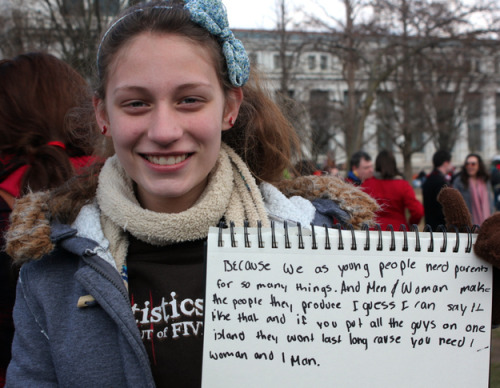 tistics
UT OF FIV
BECAUSE we as young people nerd parents
for so many things. And Men / Woman make
the people they produce I guess I can say it
like that and if you put all the guys on one
island they wont last long cause you need 1
woman and 1 Man.